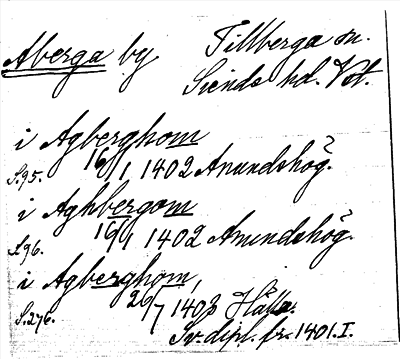 Aberga by Tillberga sn.
Siende hd. Vst.
i Agberghom
S.95. 16/1 1402 Anundshög.
i Aghbergom
S.96. 16/1 1402 Anundshög.
i Agberghom,
S.276. 20/7 1403 Hälla.
Sv. dipl. fr. 1401. I.